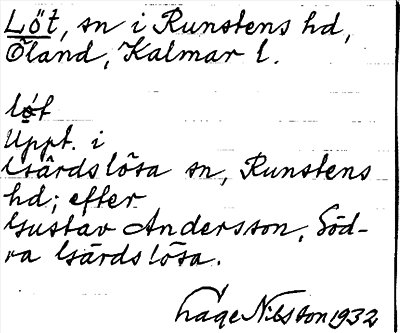 Löt, sn i Runstens hd,
Öland, Kalmar l.
löt
Uppt. i
Gärdslösa sn, Runstens
hd; efter
Gustav Andersson, Söd-
ra Gärdslösa.
Låge Nilsson 1932